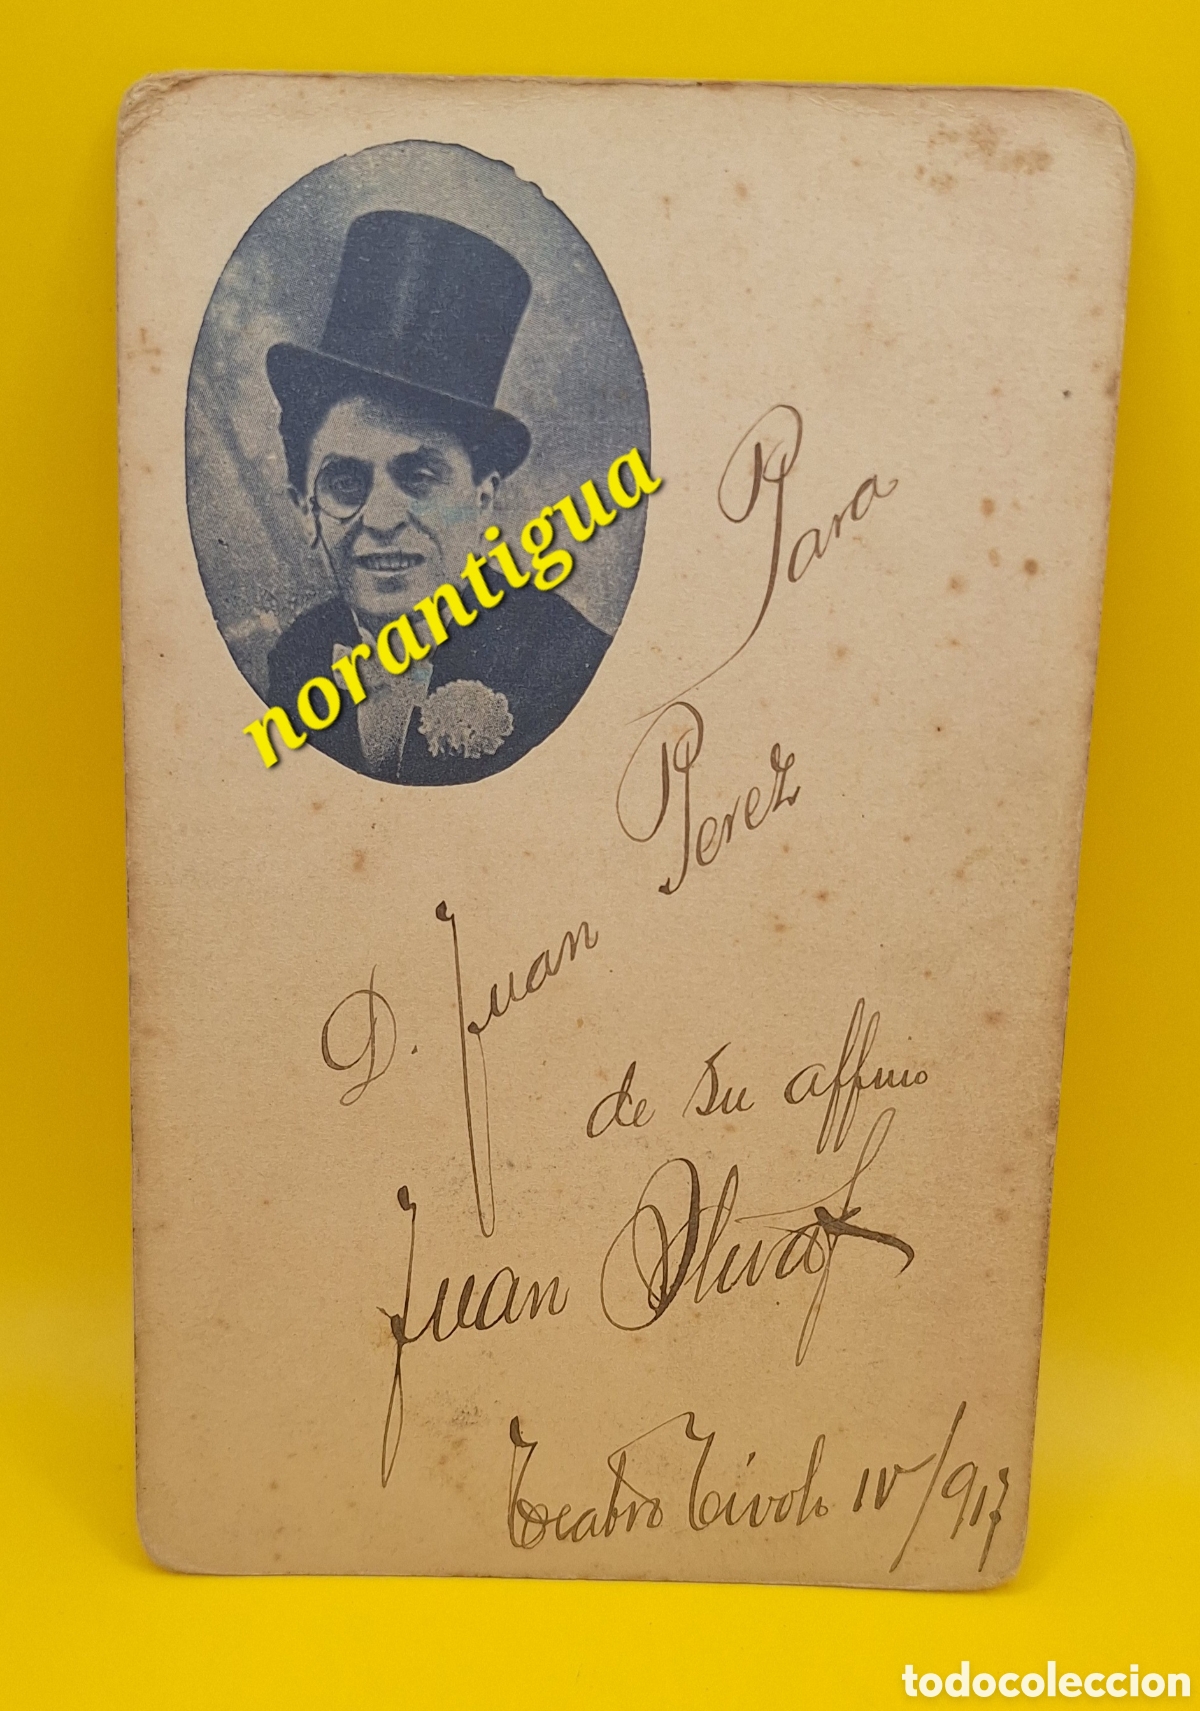 norantigua
Para
D. Juan Perez
de su affmo
Juan Oliva
Teatro Tivoli IV/917
todocoleccion